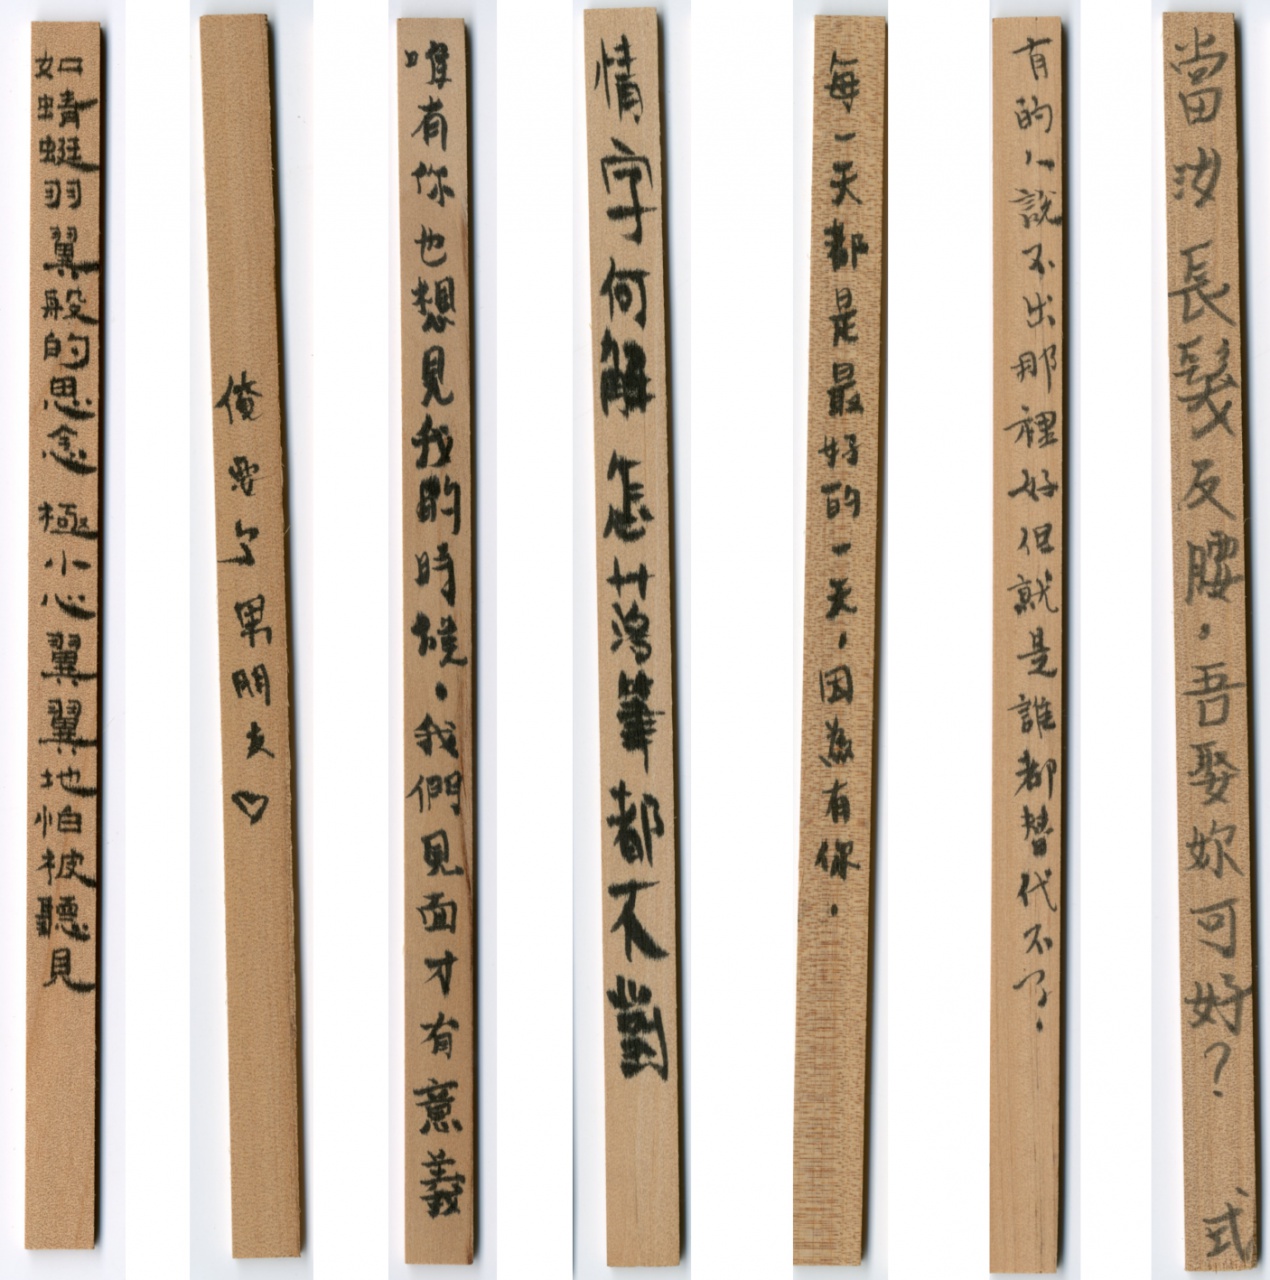 如蜻蜓羽翼般的思念 極小心翼翼地怕被聽見
要男朋友♡
唯有你也想見我的時候。我們見面才有意義
情字何解 怎落筆都不對
每一天都是最好的一天,因為有你。
有的人說不出那裡好但就是誰都替代不了。
當汝長髮反腰,吾娶妳可好? 式